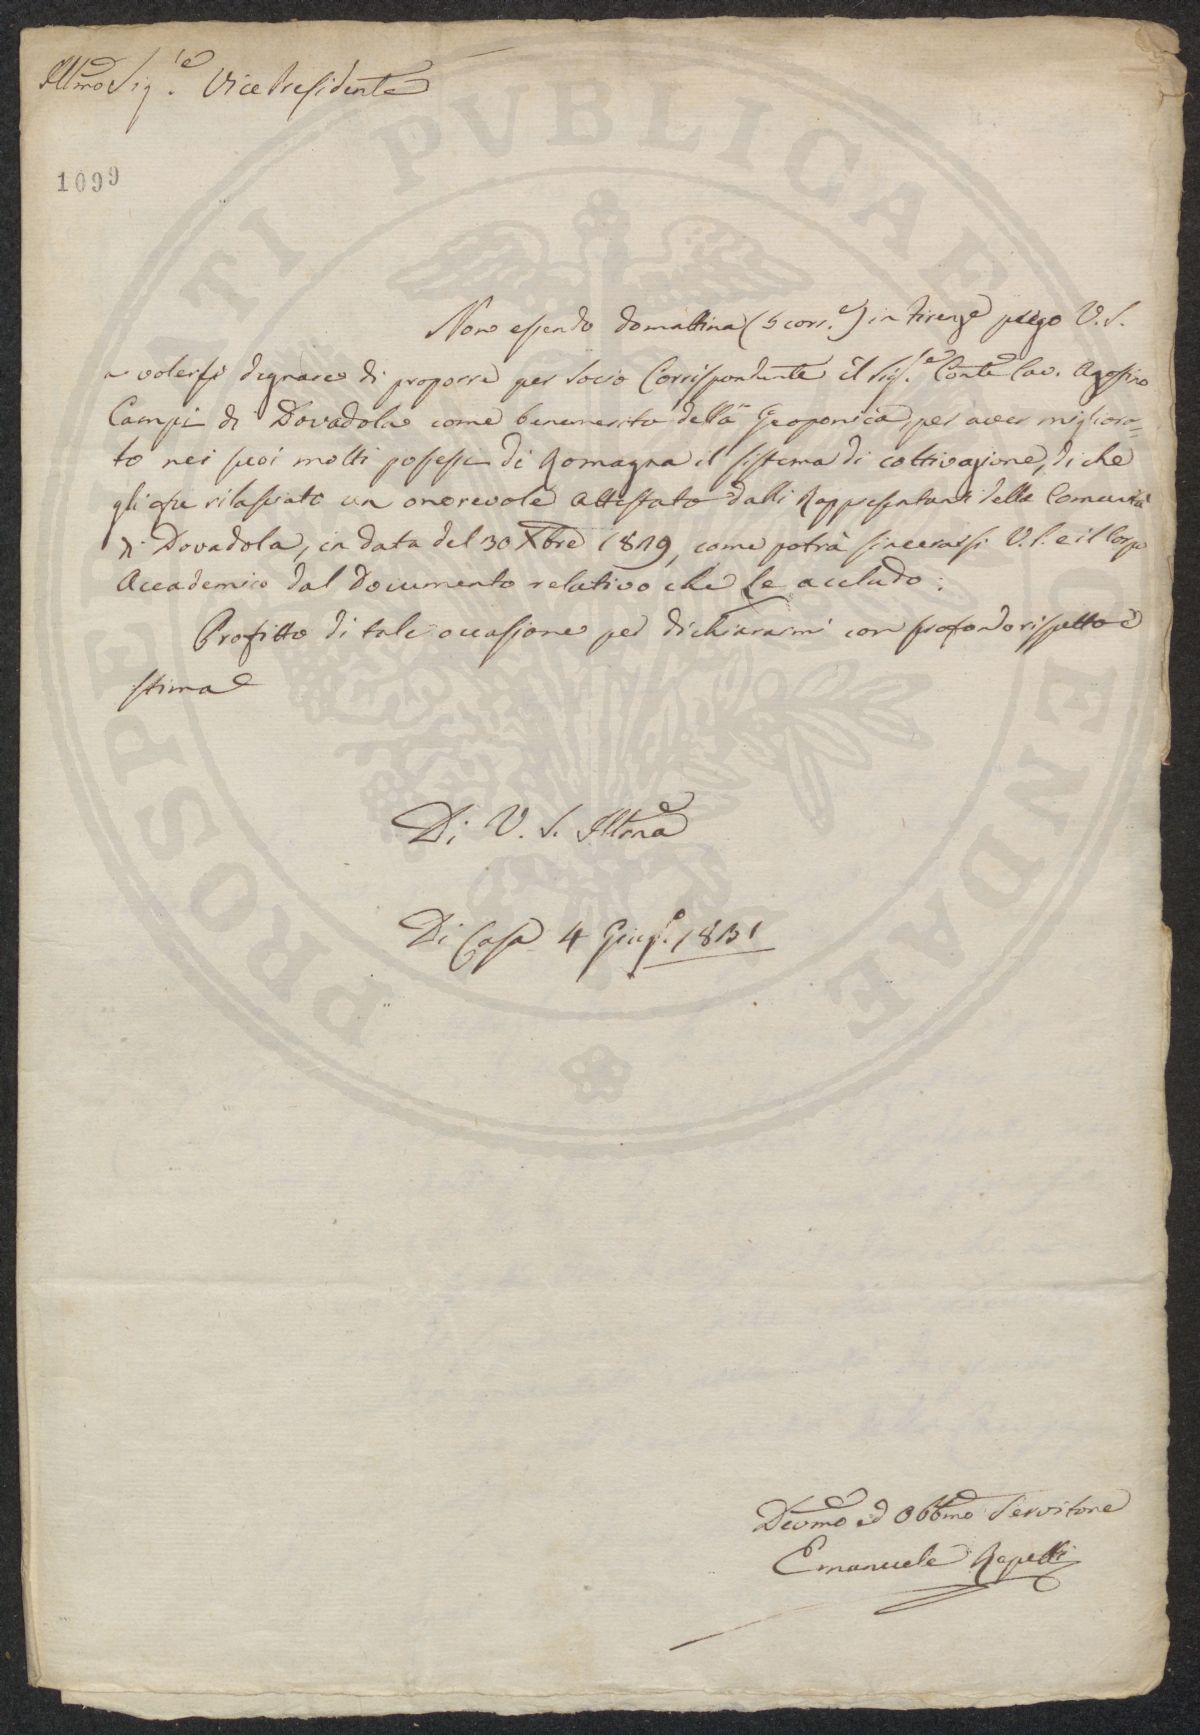 Illmo Sig.re Vice Presidente
1099
Non essendo domattina (5 corr.e) in Firenze prego V. S.
a volersi degnare di proporre per Socio Corrispondente il Sig.re Conte Cav. Agostino
Campi di Dovadola come benemerito della Geoponica, per aver migliora=
to nei suoi molti possessi di Romagna il sistema di coltivazione, di che
gli fu rilasciato un onorevole attestato dalli Rappresentanti della Comunità
di Dovadola, in data del 30 Xbre 1819, come potrà sincerarsi V. S. e il Corpo
Accademico dal Documento relativo che Le accludo.
Profitto di tale occasione per dichiararmi con profondo rispetto e
stima
Di V. S. Illma
Di Casa 4 Giug.o 1831
Devmo ed Obbmo Servitore
Emanuele Repetti
PROSPERITATI PVBLICAE AUGENDAE